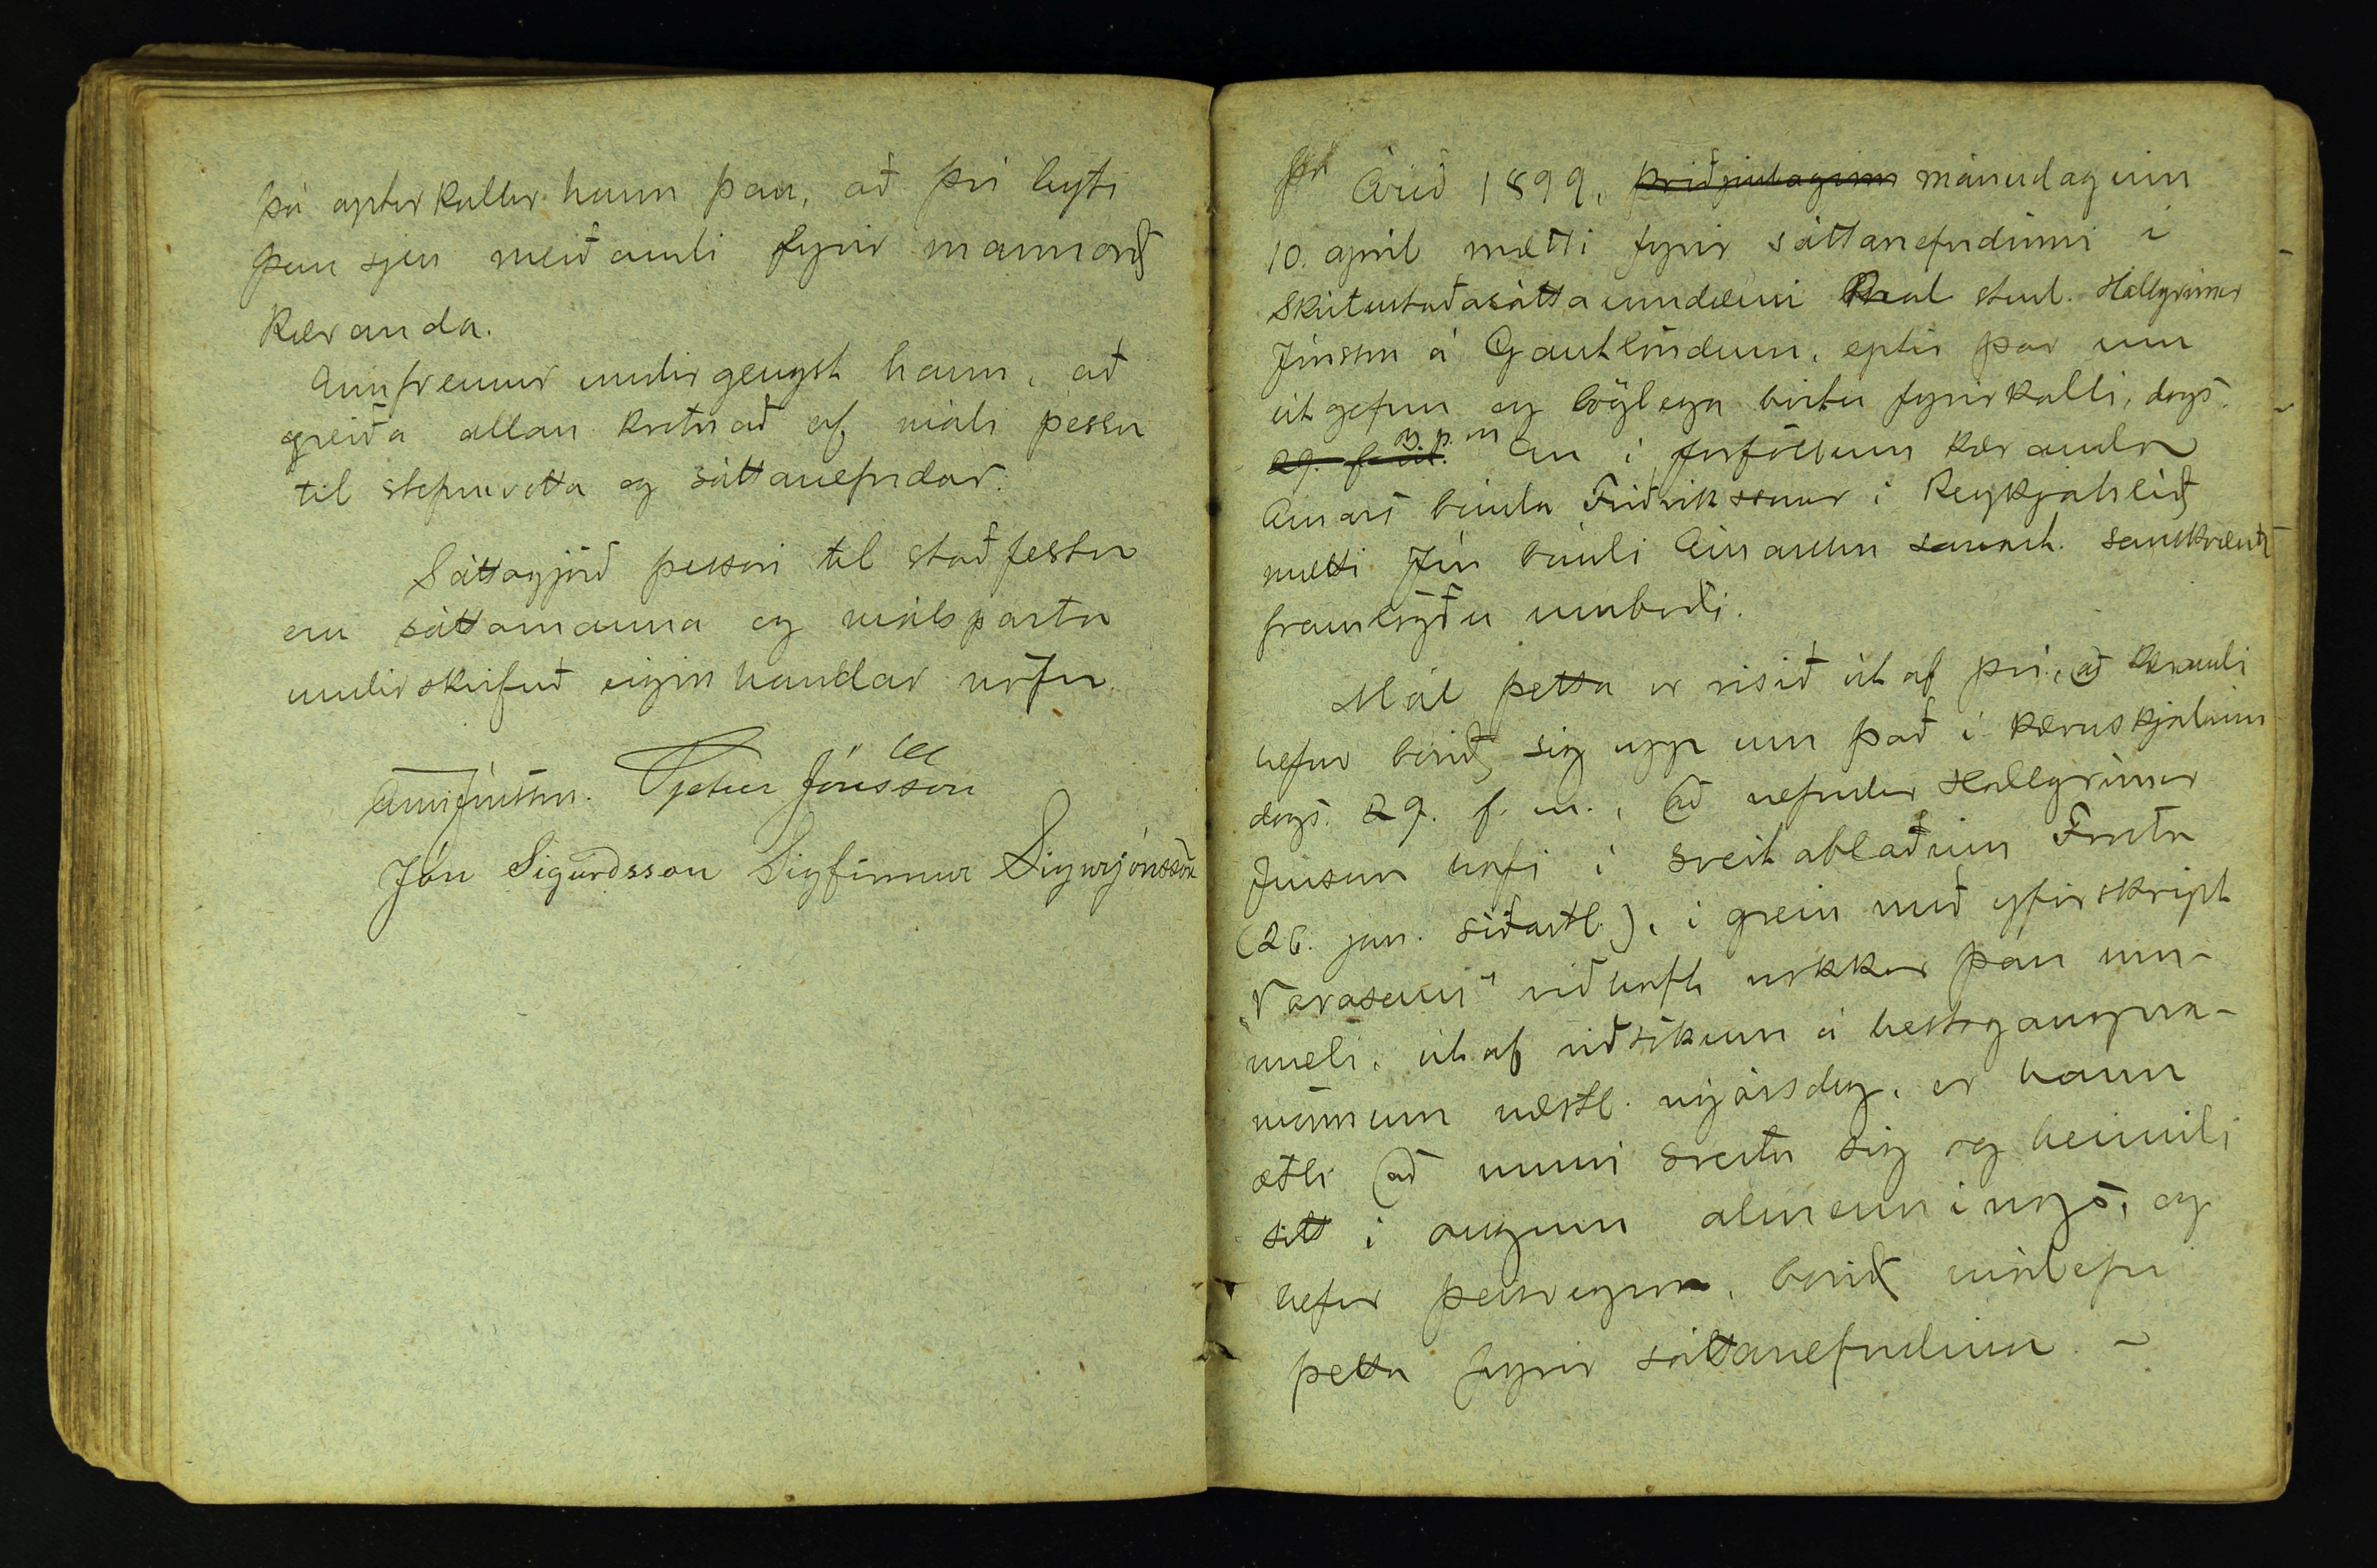 þá apturkallar hann þau, að því leyti
þau sjeu meiðandi fyrir mannorð
kæranda.
Ennfremur undirgengst hann, að
greiða allan kostnað af máli þessu
til stefnuvotta og sáttanefndar.
Sáttagjörð þessari til staðfestu
eru sáttamanna og málsparta
undirskrifuð eiginhandar nöfn.
Árni Jónsson. Pjetur Jónsson
Jón Sigurdsson Sigfinnur Sigurjónsson
Árið 1899, þriðjudaginn mánudaginn
10. apríl mætti fyrir sáttanefndinni í
Skútustaðasáttaumdæmi stud. Hallgrímur
Jónsson á Gautlöndum, eptir þar um
útgefnu og löglega birtu fyrirkalli, dags.
29. f. m. En í forföllum kæranda
Einars bónda Friðrikssonar í Reykjahlíð
mætti Jón bóndi Einarsson samast. samkvæmt
framlögðu umboði.
Mál þetta er risið út af því, að kærandi
hefur borið sig upp um það í kæruskjalinu
dags. 29. f. m., að nefndur Hallgrímur
Jónsson hafi í sveitablaðinu Frosta
(26. jan. síðastl.), í grein með yfirskript
„Varasemi" viðhaft nokkur þau um-
mæli, út af viðtökum á hestagaungna-
mönnum næstl. nýársdag, er hann
ætli að muni sverta sig og heimili
sitt í augum almennings, og
hefur þessvegna, borið málefni
þetta fyrir sáttanefndina. -